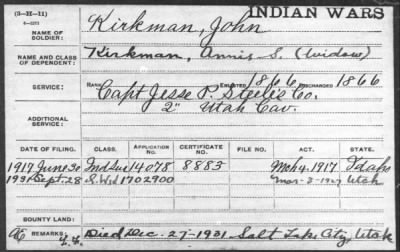 (3-H-11)
INDIAN WARS
6-5273
NAME OF SOLDIER: Kirkman, John
NAME AND CLASS OF DEPENDENT: Kirkman, Annis S. (Widow)
SERVICE: RANK ENLISTED 1866 DISCHARGED 1866
Capt Jesse P. Steele's Co.
2" Utah Cav.
ADDITIONAL SERVICE:
DATE OF FILING. CLASS. APPLICATION NO. CERTIFICATE NO. FILE NO. ACT. STATE.
1917 June 30 Ind Sur 14078 8883 Mch 4, 1917 Idaho
1931 Sept. 28 S. Wid 1702900 Mar-3-1927 Utah
BOUNTY LAND:
REMARKS: Died Dec. 27-1931 Salt Lake City, Utah